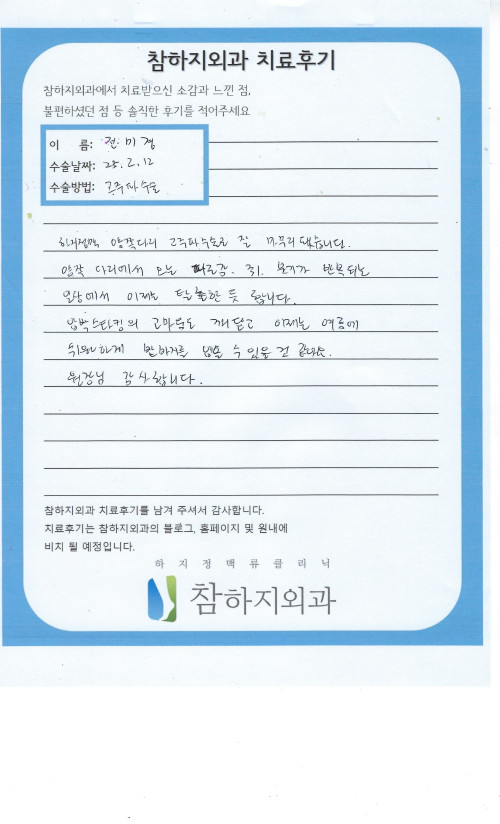 참하지외과 치료후기
참하지외과에서 치료받으신 소감과 느낀 점,
불편하셨던 점 등 솔직한 후기를 적어주세요
이 름: 전미경
수술날짜: 25. 2. 12
수술방법: 고주파수술
하지정맥 양쪽다리 고주파수술로 잘 마무리 됐습니다.
양쪽 다리에서 오는 피로감. 쥐. 붓기가 반복되는
일상에서 이제는 탈출한 듯 합니다.
압박스타킹의 고마움도 깨닫고 이제는 여름에
시원하게 반바지를 입을 수 있을 것 같아요.
원장님 감사합니다.
참하지외과 치료후기를 남겨 주셔서 감사합니다.
치료후기는 참하지외과의 블로그, 홈페이지 및 원내에
비치 될 예정입니다.
하지정맥류클리닉
참하지외과